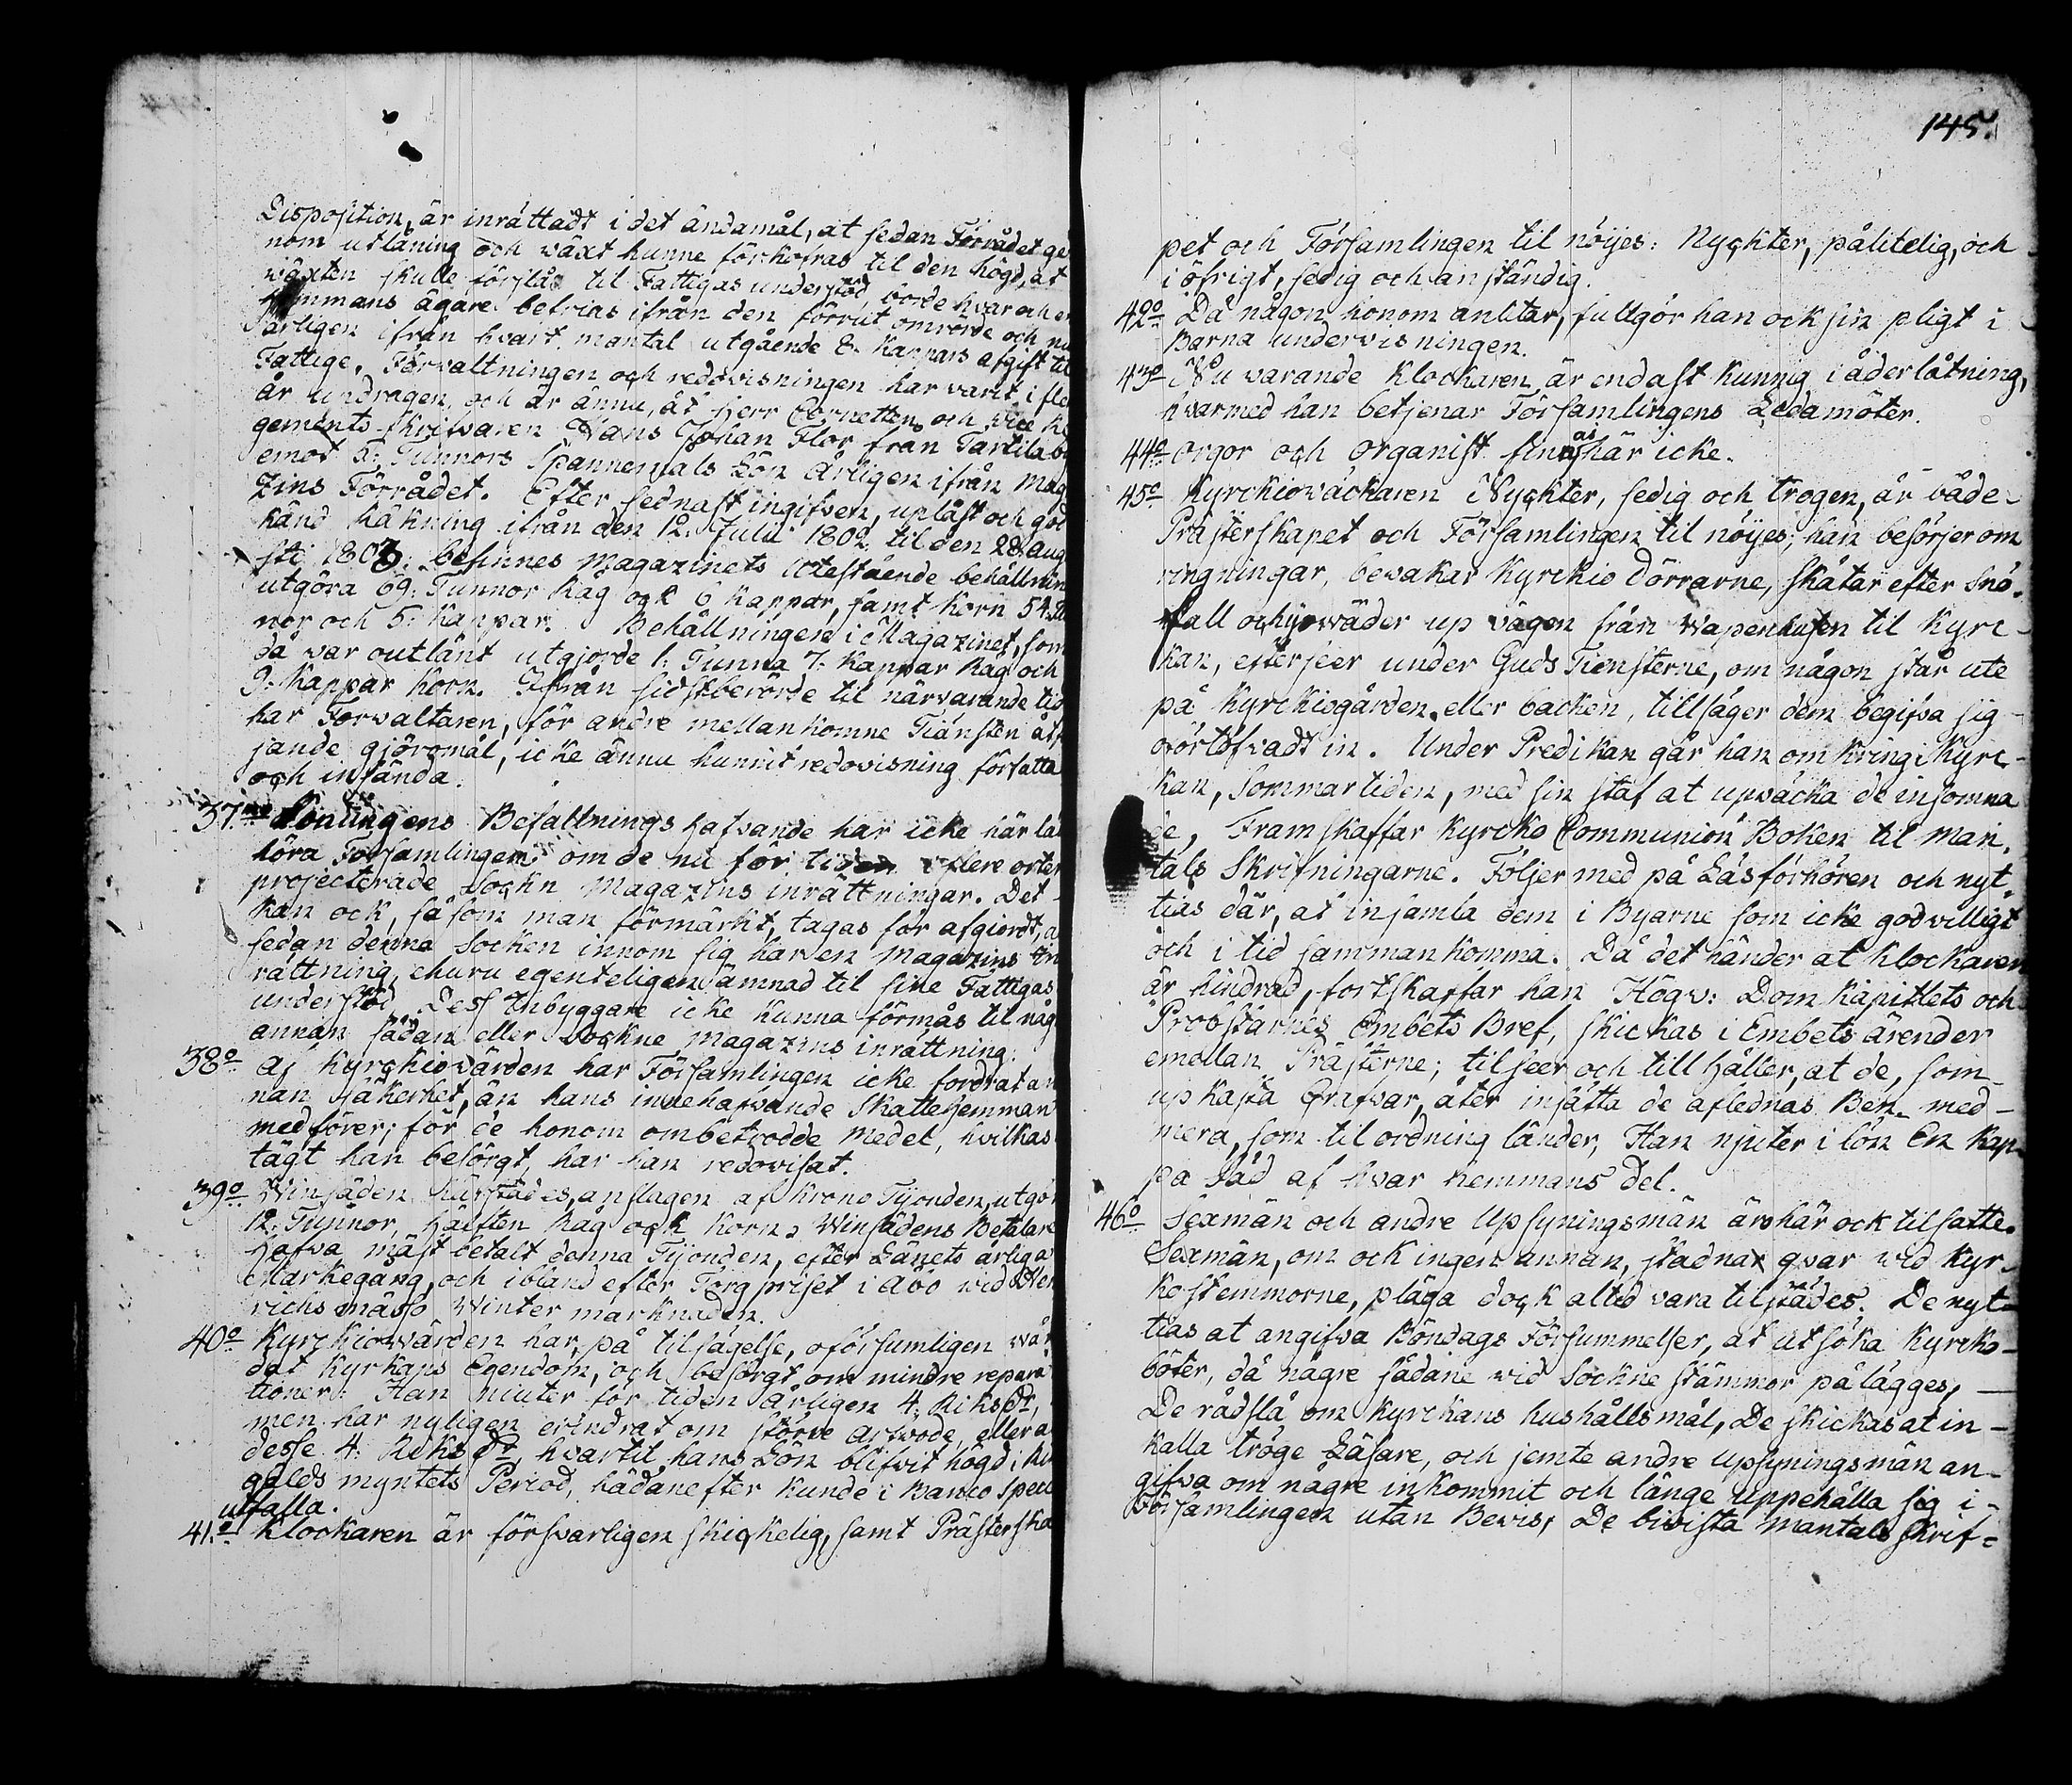 Disposition, är inrättadt i det ändamål, at sedan Förrådet ge
nom utlåning och wäxt hunne förkofras til den högd, at
wäxten skulle förslå til Fattigas understöd, borde hvar och en
Hemmans ägare befrias ifrån den förrut omrörde och nu
årligen ifrån hvart mantal utgående 8. kappars afgift til
Fattige. Förvaltningen och redovisningen har varit i fle
år updragen, och är ännu, åt Herr Cornetten och vice Re
gements-skrifvaren Hans Johan Flor från Tartila
emot 2: Tunnors Spannemåls Lön årligen ifrån Maga
zins Förrådet. Efter sednast ingifven, upläst och god
känd Räkning ifrån den 12. Julii 1802 til den 28 Augu
sti 1803: befinnes Magazinets utestående behållning
utgöra 69: Tunnor Råg och 6 kappar, samt Korn 54.
nor och 5: kappar. Behållningen i Magazinet, som
då var outlånt utgjorde 1: Tunna 7: Kappar Råg och
9: Kappar Korn. Ifrån sidstberörde til närvarande tid
har Förvaltaren, för andre mellankomne Tiänsten åtföl
jande gjöromål, icke ännu hunnit redovisning författa
och insända.
37:mo Konungens Befallnings Hafvande har icke här lå
höra Församlingen, om de nu för tiden i flere orter
projecterade Sockn Magazins inrättningar. Det
kan ock, såsom man förmärkt, tagas för afgiordt, a
sedan denna Socken innom sig har en Magazins In
rättning, churu egenteligen ämnad til sine Fattigas
understöd, Dess Inbyggare icke kunna förmås til någ
annan sådan eller Sockne Magazins inrättning.
38:o Af Kyrckiovärden har Församlingen icke fordrat an
nan säkerhet, än hans innehafvande Skattehemman
medförer; för de honom ombetrodde medel, hvilkas
tägt han besörgt, har han redovisat.
39:o Vinsäden härstädes, anslagen af Krono Tijonden, utgör
12: Tunnor, hälften Råg och Korn. Winsädens Betalare
Hafva mäst betalt denna Tijonden, efter Länets årliga
Markegång, och ibland efter Torg priset i Åbo wid Hen
richs mässo Winter marknaden.
40:o Kyrckiowärden har, på tilsägelse, oförsumligen wår
dat Kyrkans Egendom, och besörgt om mindre repara
tioner: Han niuter för tiden årligen 4: Riksdr,
men har nyligen erindrat om större arfvode, eller a
desse 4: Riksdr, hvartil hans Lön blifvit högd i Rik
gälds myntets Period, hädanefter kunde i Banco Specie
utfalla.
41:o Klockaren är försvarligen skickelig, samt Prästerska
145.
pet och Församlingen til nöijes: Nyckter, pålitelig, och
i öfrigt, sedig och anständig.
42:o Då någon honom anlitar, fullgör han ock sin pligt i
Barna undervisningen.
43:o Nu varande Klockaren är endast kunnig i åderlåtning,
hvarmed han betjenar Församlingens Ledamöter.
44:o Orgor och Organist finnas här icke.
45:o Kyrckioväckaren Nyckter, sedig och trogen, är både
Prästerskapet och Församlingen til nöijes; han besörjer om
ringningar, bevakar Kyrckio Dörrarne, skåtar efter Snö-
fall och yrwäder up vägen från Wapenhusen til Kyrc-
kan, efterseer under Guds Tiensterne, om någon står ute
på Kyrckiogården eller backen, tillsäger dem begifva sig
oförtöfvadt in. Under Predikan går han omkring i Kyrc-
kan, Sommartiden, med sin staf at upväcka de insomna
de. Framskaffar Kyrcko Communion Boken til Man-
tals Skrifningarne. Följer med på Läsförhören och nyt-
tias där, at insamla dem i Byarne som icke godvilligt
och i tid sammankomma. Då det händer at Klockaren
är hindrad, fortskaffar han Högv: Dom Kapittlets och
Prostarnes Embets Bref, skickas i Embets ärender
emellan Prästerne; tilseer och tillhåller, at de, som
upkasta Grafvar, åter insätta de aflednas Ben, med-
mera, som til ordning länder. Han njuter i lön En Kap-
pa Säd af hvar hemmans del.
46:o Sexmän och andre Upsyningsmän äro här ock tilsatte.
Sexmän, om ock ingen annan, stadnar qvar wid Kyr-
kostemmorne, pläga dock altid vara tilstädes. De nyt-
tias at angifva Böndags Försummelser, at utsöka Kyrcko-
böter, då någre sådane wid Sockne stämmor pålägges,
De rådslå om Kyrckans hushållsmål, De skickas at in-
kalla tröge Läsare, och jemte andre Upsyningsmän an-
gifva om någre inkommit och länge uppehålla sig i
Församlingen utan Bewis, De bivista Mantals Skrif-